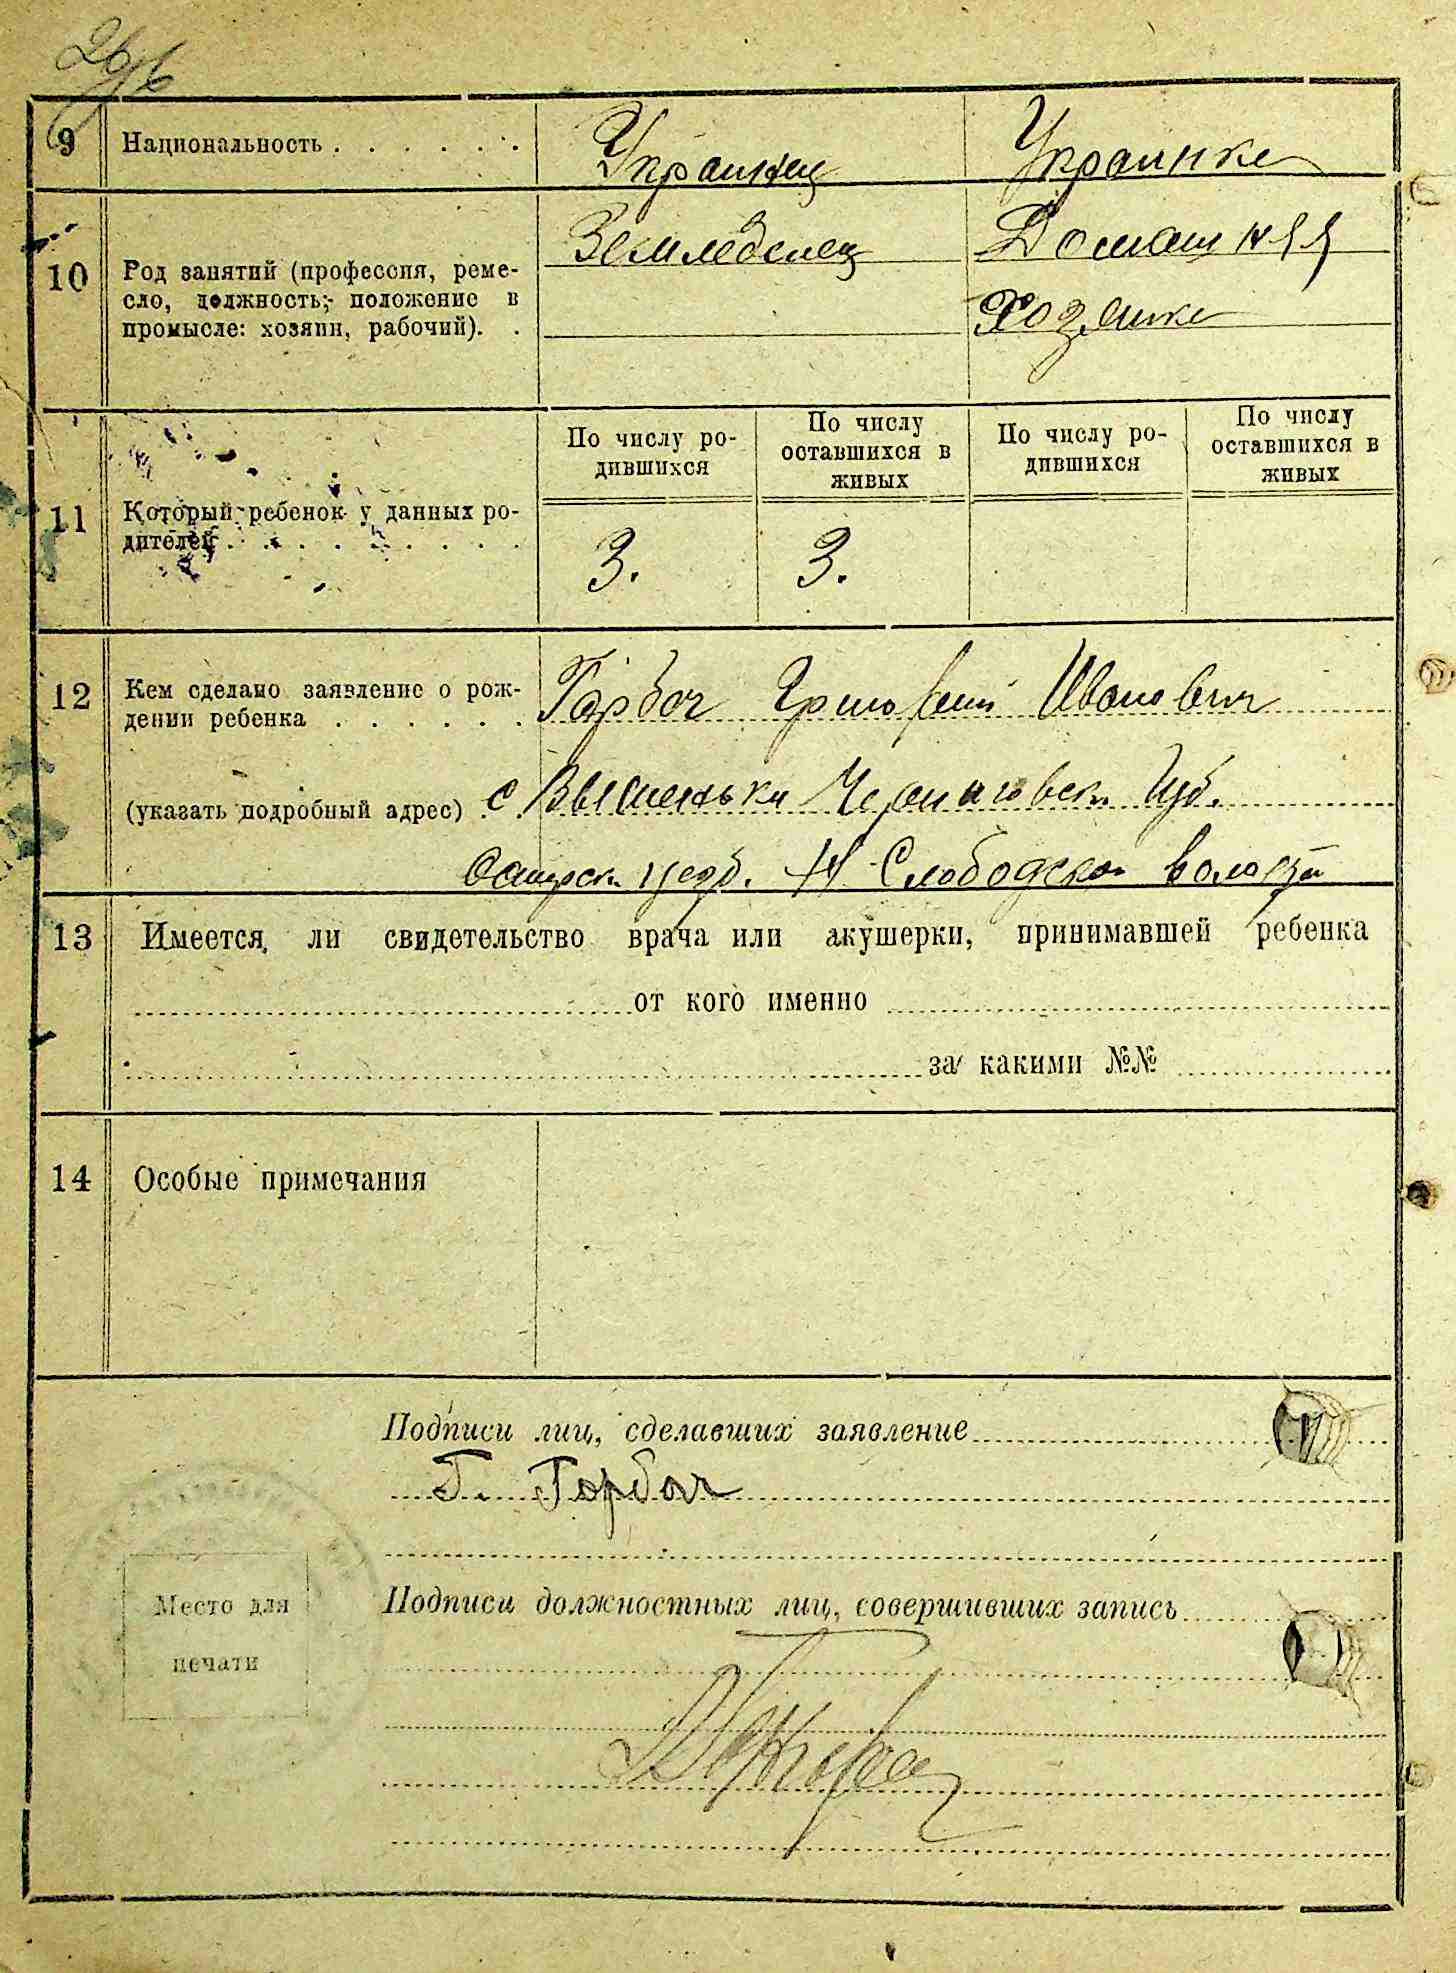 9 Национальность . . . . . . Украинец Украинка
10 Род занятий (профессия, реме-
сло, должность; положение в
промысле: хозяин, рабочий). .
Земледелец
Домашняя
Хозяйка
11 Который ребенок у данных ро-
дителей . . . . . . . . . .
По числу ро-
дившихся
По числу
оставшихся в
живых
По числу ро-
дившихся
По числу
оставшихся в
живых
3. 3.
12 Кем сделано заявление о рож-
дении ребенка . . . . . . .
Горбач Григорий Иванович
(указать подробный адрес) . . с Вишеньки Черниговск. Губ.
Остерск. уезд. Н Слободской волости
13 Имеется ли свидетельство врача или акушерки, принимавшей ребенка
от кого именно
за какими №№
14 Особые примечания
Подписи лиц, сделавших заявление
Г. Горбач
Место для
печати
Подписи должностных лиц, совершивших запись